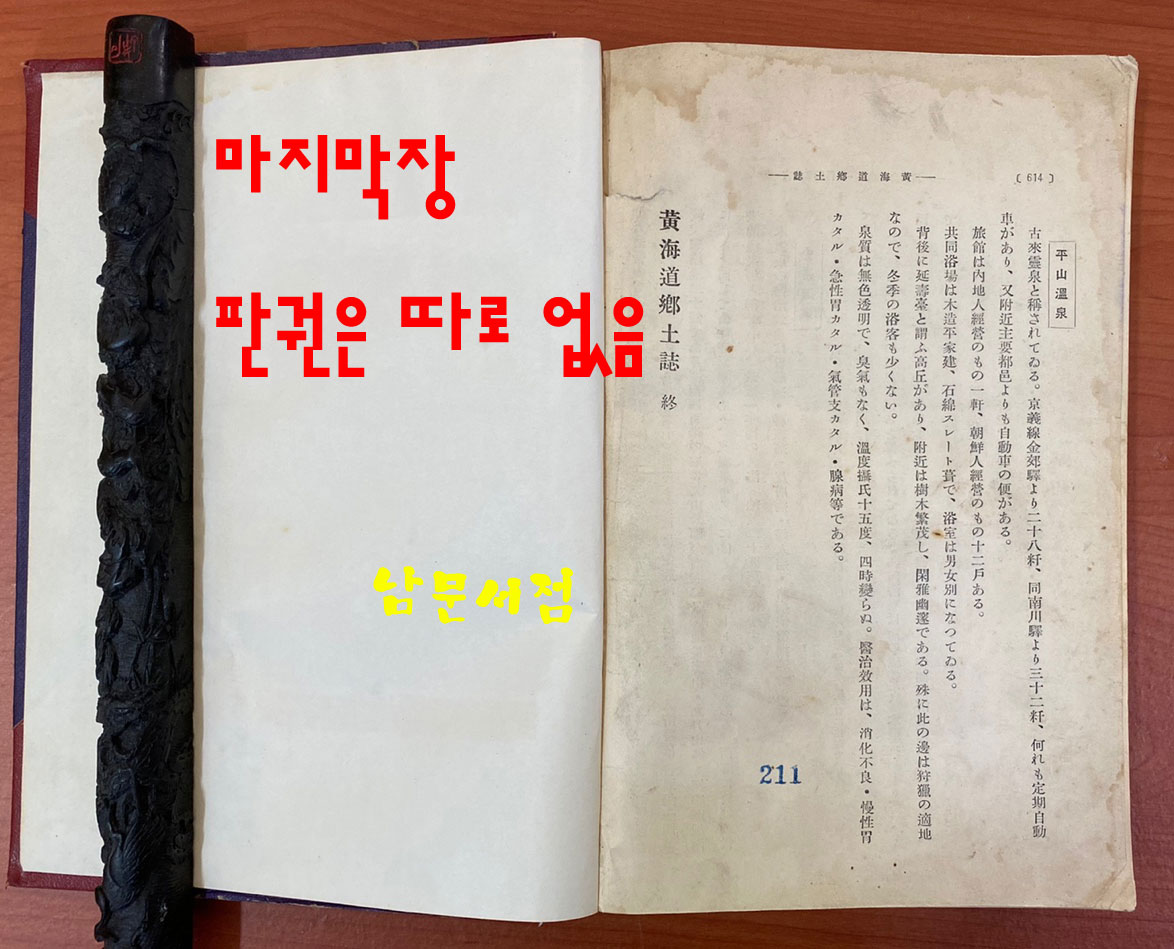 마지막장
판권은 따로 없음
남문서점
〔614〕
黃海道鄕土誌
平山溫泉
古來靈泉と稱されてゐる。京義線金郊驛より二十八粁、同南川驛より三十二粁、何れも定期自動
車があり、又附近主要都邑よりも自動車の便がある。
旅館は內地人經營のもの一軒、朝鮮人經營のもの十二戶ある。
共同浴場は木造平家建、石綿スレート葺で、浴室は男女別になつてゐる。
背後に延壽臺と謂ふ高丘があり、附近は樹木繁茂し、閑雅幽邃である。殊に此の邊は狩獵の適地
なので、冬季の浴客も少くない。
泉質は無色透明で、臭氣もなく、溫度攝氏十五度、四時變らぬ。醫治效用は、消化不良・慢性胃
カタル・急性胃カタル・氣管支カタル・腺病等である。
黃海道鄕土誌 終
211